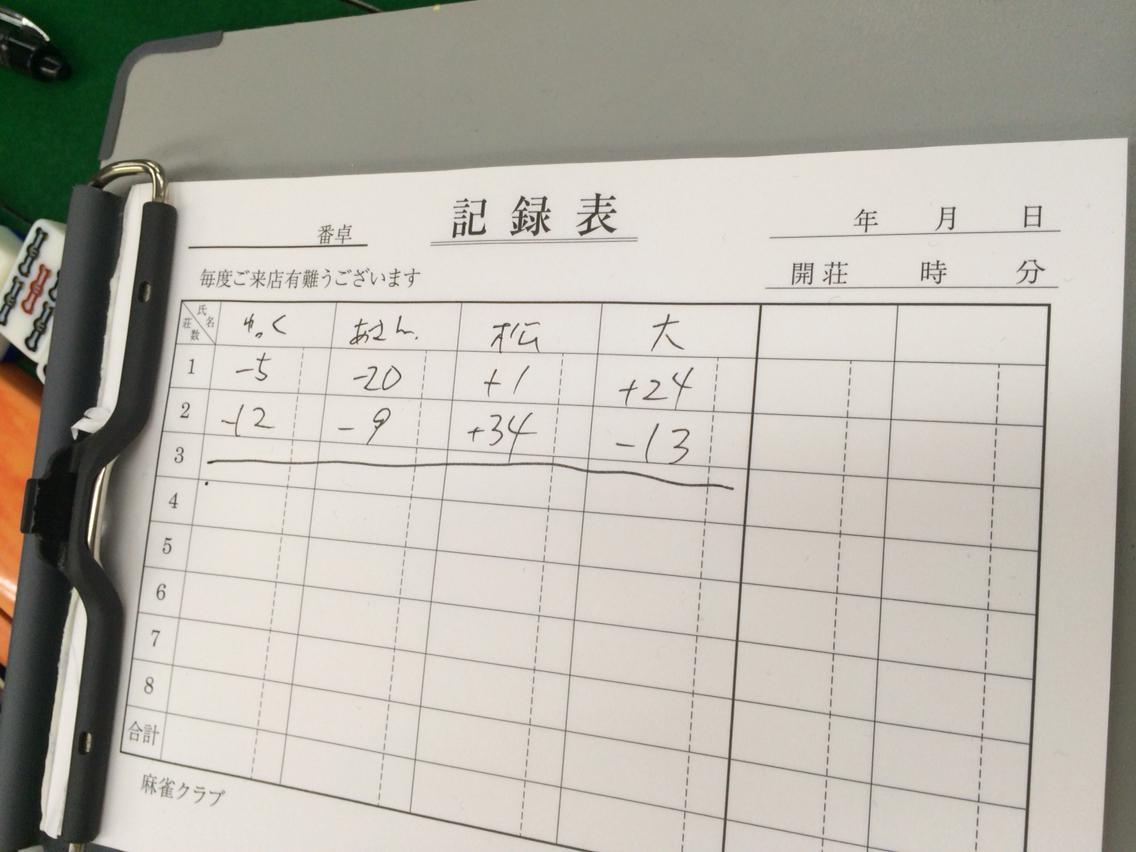 記録表
番卓
年 月 日
毎度ご来店有難うございます
開荘 時 分
氏名 荘数 ゆっく あさん. 松 大
1 -5 -20 +1 +24
2 -12 -9 +34 -13
3
4
5
6
7
8
合計
麻雀クラブ